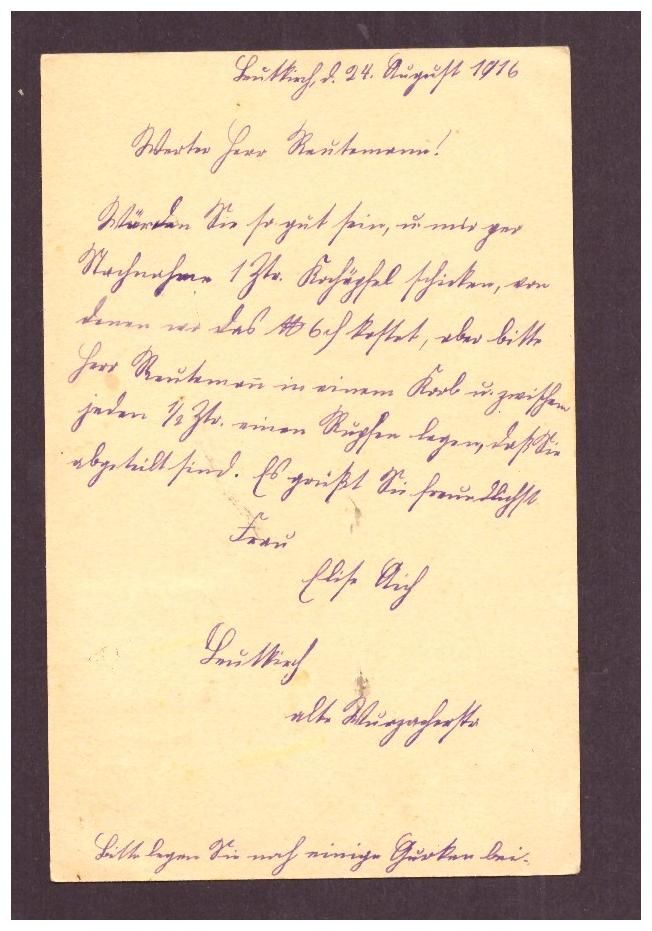 Leutkirch, d. 24. August 1916
Werter Herr Reutemann!
Würden Sie so gut sein, u. mir per
Nachnahme 1 Ztr. Kochäpfel schicken, von
denen wo das ℔ 6 ₰ kostet, aber bitte
Herr Reutemañ in einem Korb u. zwischen
jeden ½ Ztr. einen Rupfen legen, daß Sie
abgeteilt sind. Es grüßt Sie freundlichst
Frau
Elise Aich
Leutkirch
alte Wurzacherstr
Bitte legen Sie noch einige Gurken bei.